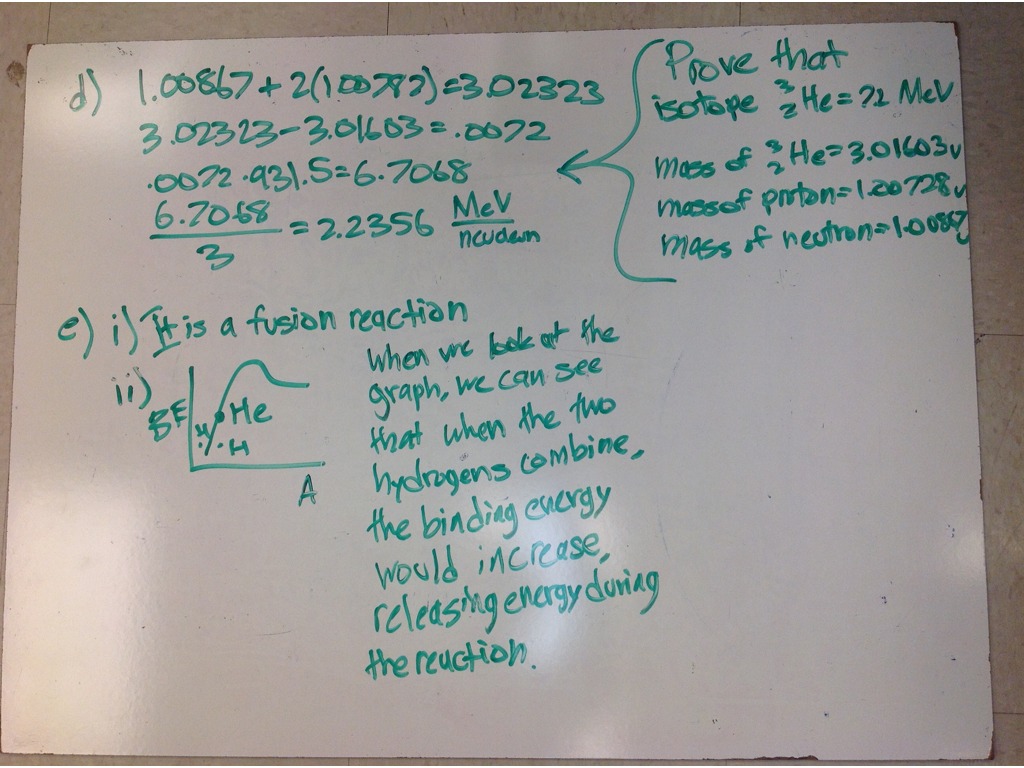 d) 1.00867 + 2(1.00782) = 3.02323
3.02323 - 3.01603 = .0072
.0072 · 931.5 = 6.7068
6.7068
3
= 2.2356 MeV
Prove that
isotope ³₂He = ?2 MeV
mass of ³₂He = 3.01603u
mass of proton = 1.00728u
mass of neutron = 1.00867
e) i) It is a fusion reaction
ii)
BE
He
H
H
A
When we look at the
graph, we can see
that when the two
hydrogens combine,
the binding energy
would increase,
releasing energy during
the reaction.